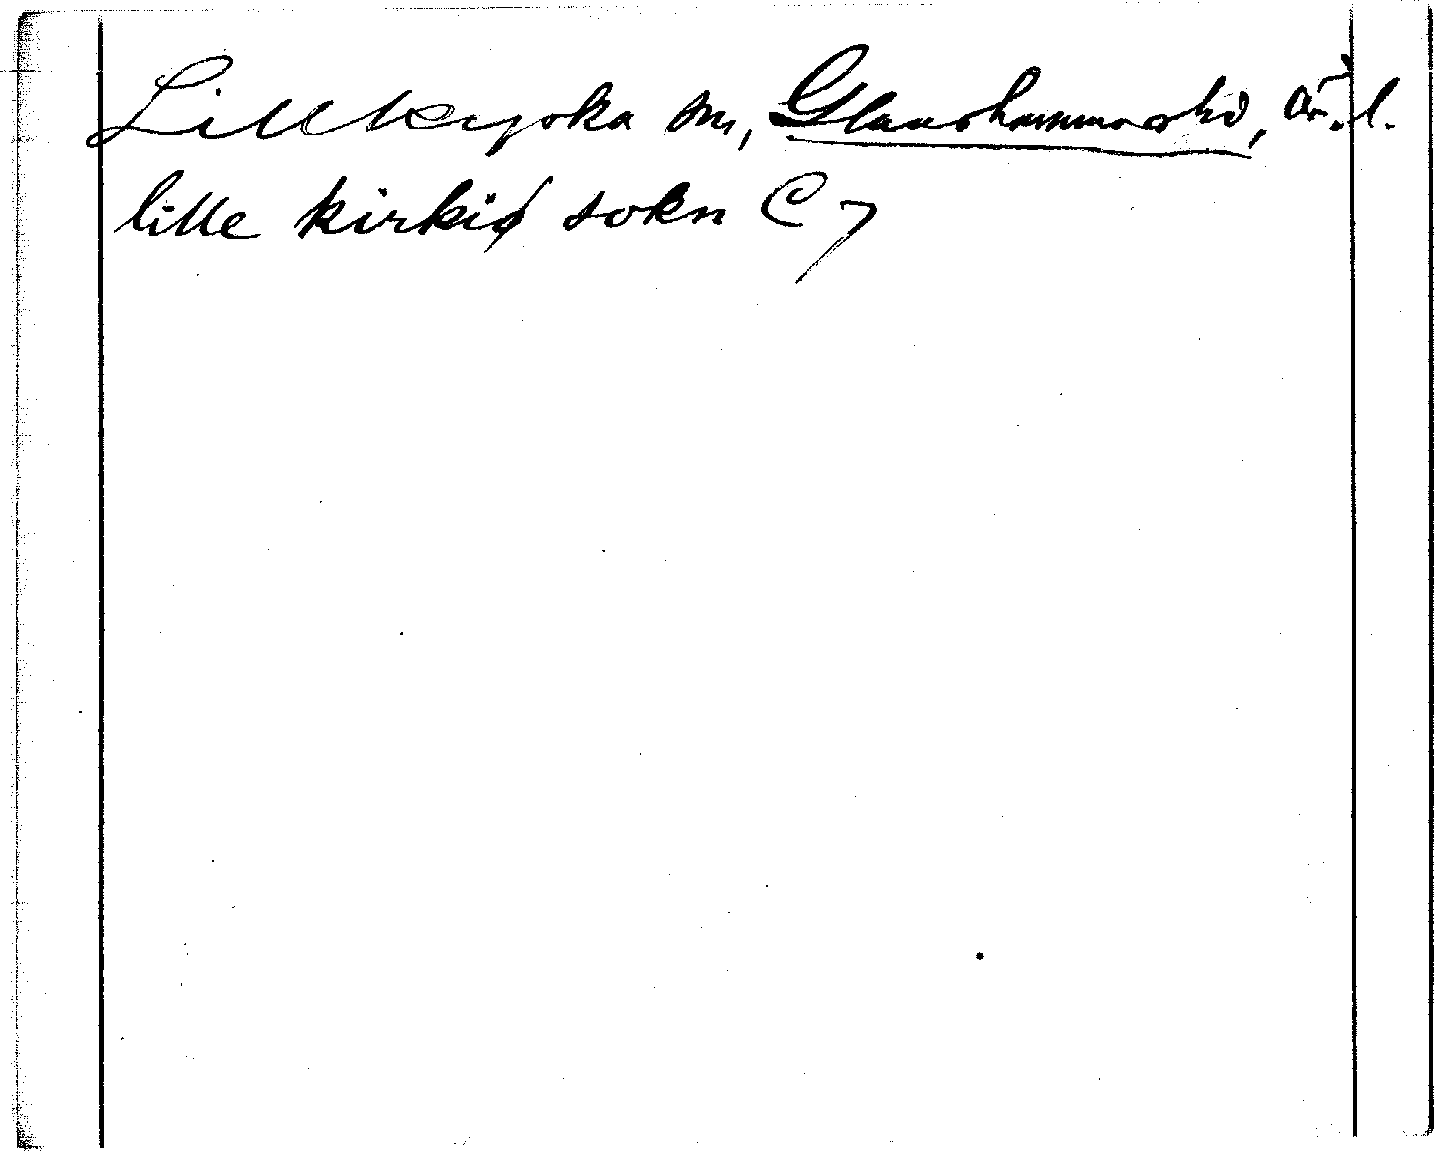 Lillkyrka sn, Glanshammars hd, Ör. l.
lille kirkiø sokn C 7